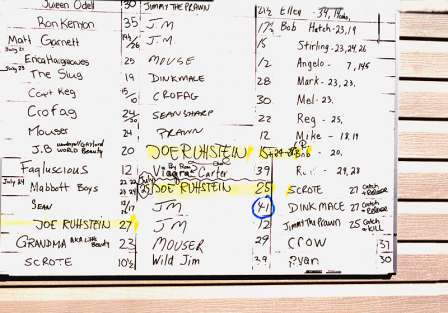 Jween Odell 30 JIMMY THE PRAWN 21½ Ellen 34, 14
Ron Kenyon 35 J.M 17½ Bob Hatch - 23, 19
Matt Garnett J.M 15 Stirling - 23, 24, 26
Erica Hargreaves 25 MOUSE 12 Angelo - 7, 145
The Slug 19 DINKMACE 28 Mark - 23, 23.
Cart Keg 15/10 CROFAG 30 Mel - 23.
Crofag 24/30 SEAN SHARP 22 Reg - 25,
Mouser 24 PRAWN 12 Mike - 18, 19
J.B WORLD Beauty 20 JOE RUHSTEIN Bob - 20.
Fagluscious 12 Viagra Carter 39 29, 28
July 24 Mabbott Boys JOE RUHSTEIN 25 SCROTE 27 Catch & Release
SEAN 12/17 J.M 41 DINKMACE 27 Catch & Release
JOE RUHSTEIN 27 J.M 12 Jimmy The Prawn 25 Catch & KILL
GRANDMA AKA Little Beauty 23 MOUSER 29 Crow 31
SCROTE 10½ Wild Jim 29 Ryan 30